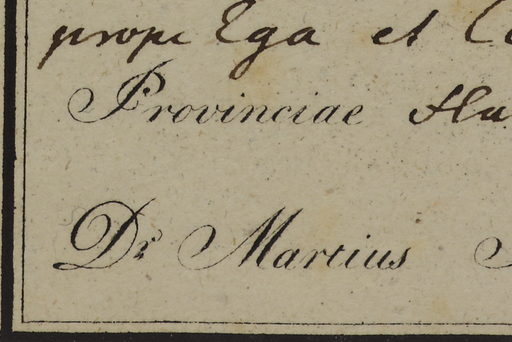 prope Ega et
Provinciae
Dr Martius